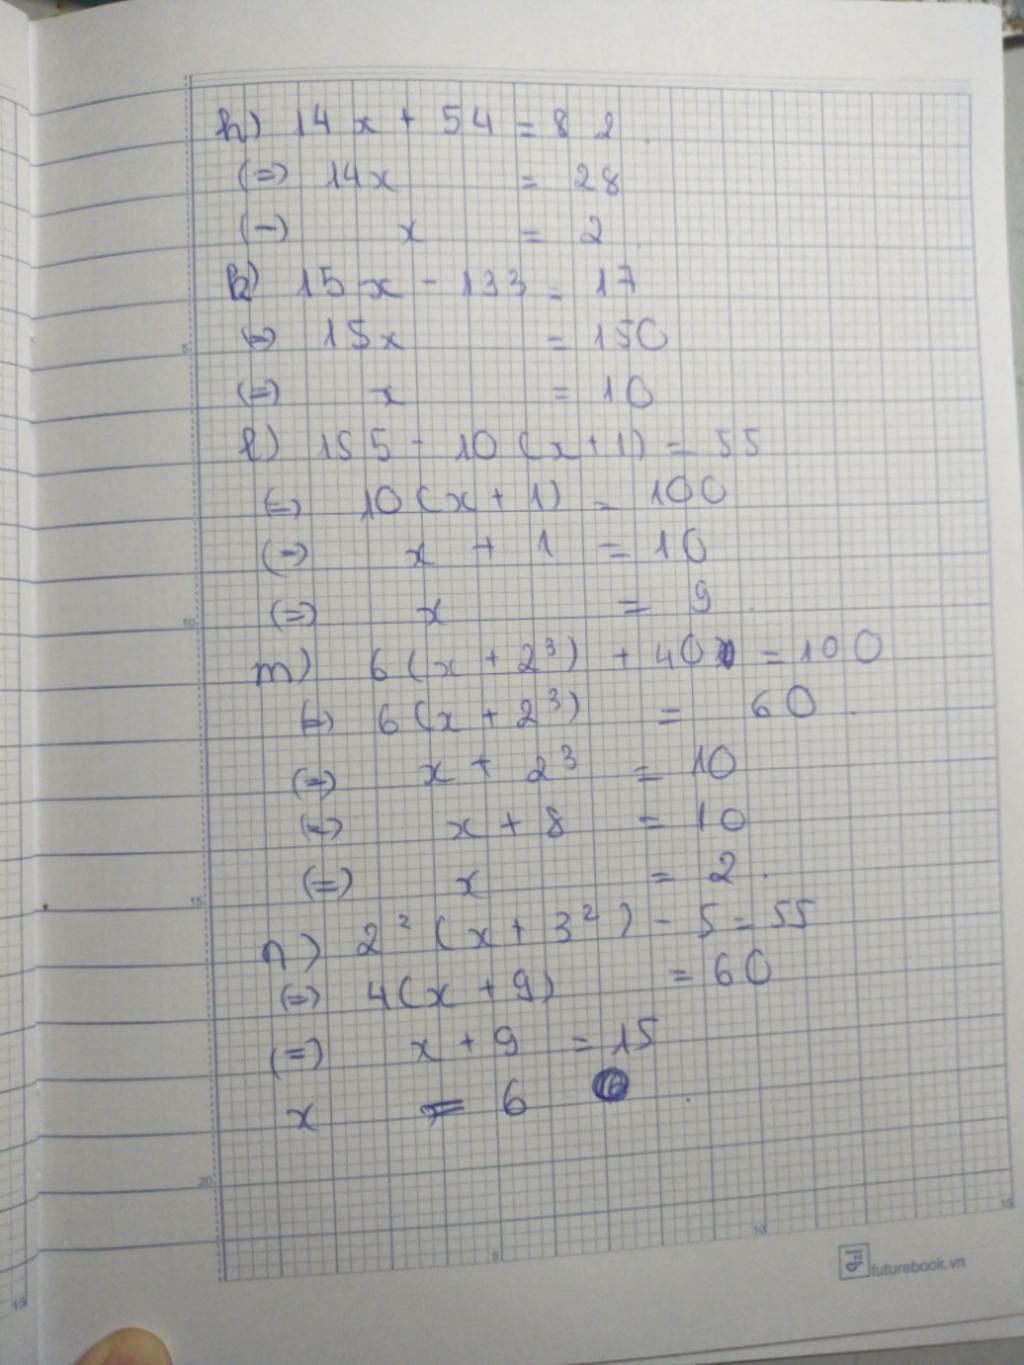 h) 14x + 54 = 82
(=) 14x = 28
(=) x = 2
k) 15x - 133 = 17
(=) 15x = 150
(=) x = 10
l) 155 - 10(x+1) = 55
(=) 10(x + 1) = 100
(=) x + 1 = 10
(=) x = 9
m) 6(x + 2³) + 40 = 100
(=) 6(x + 2³) = 60
(=) x + 2³ = 10
(=) x + 8 = 10
(=) x = 2
n) 2²(x + 3²) - 5 = 55
(=) 4(x + 9) = 60
(=) x + 9 = 15
x = 6
5
10
15
20
5
10
15
15
futurebook.vn